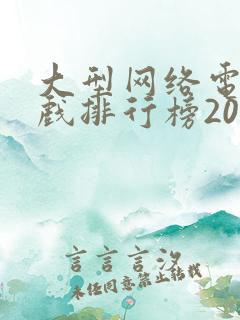 大型网络电
戏排行榜20
言言言汐
未经同意禁止转载